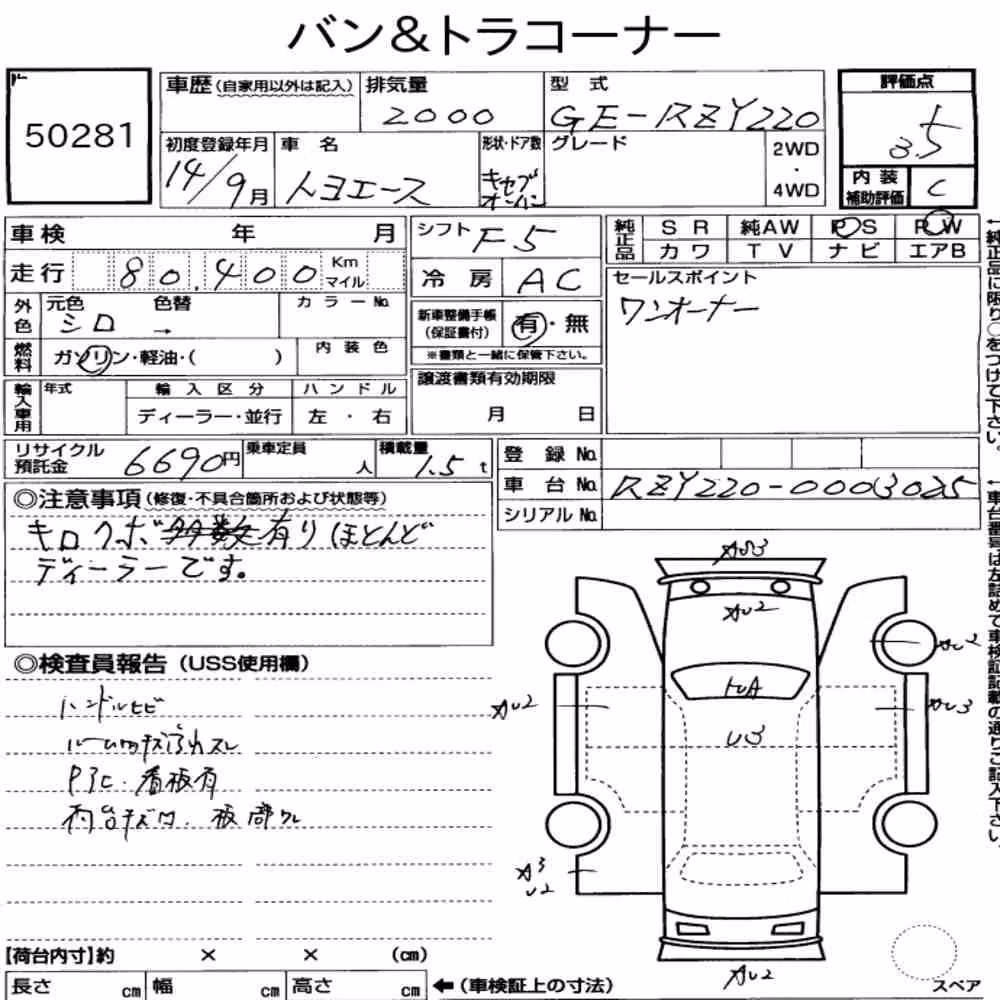 バン&トラコーナー
50281
車歴(自家用以外は記入) 排気量 型 式 評価点
2000 GE-RZY220
初度登録年月 車 名 形状・ドア数 グレード 2WD 3.5
・
14/9月 トヨエース 4WD 内 装 補助評価 C
車検 年 月 シフト F5 純正品 SR 純AW PS PW
カワ TV ナビ エアB
走行 80,400 Km マイル 冷 房 AC セールスポイント
ワンオーナー
外色 元色 色替 カラーNo.
シロ → 新車整備手帳 (保証書付) 有・無
※書類と一緒に保管下さい。
燃料 ガソリン・軽油・( ) 内装色
譲渡書類有効期限
月 日
輸入車用 年式 輸入区分 ハンドル
ディーラー・並行 左・右
リサイクル預託金 6690円 乗車定員 人 積載量 1.5t
登 録 No.
車 台 No. RZY220-0003025
シリアル No.
◎注意事項(修復・不具合箇所および状態等)
キロ クボ 有り ほとんど
ディーラーです。
◎検査員報告(USS使用欄)
ハンドルヒビ
看板有
AU3
AU2
AU2
AU2
AU3
U3
A3
U2
AU2
スペア
【荷台内寸】約 × × (cm)
長さ cm 幅 cm 高さ cm ←(車検証上の寸法)
←純正品に限り○をつけて下さい。
←車台番号は左詰めで車検証記載の通りご記入下さい。